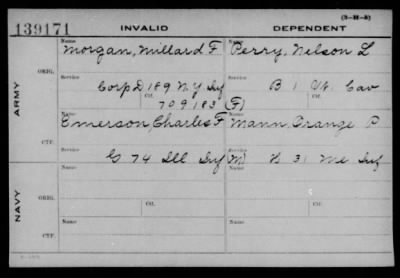 (3-H-5)
139171 INVALID DEPENDENT
Name Name
Morgan, Millard F Perry, Nelson L
ORIG.
Service Service
Corp D 189 N Y Inf B 1 Vt. Cav
Ctf. Ctf.
709183 (F)
ARMY
Name Name
Emerson, Charles F Mann, Orange P
CTF.
Service Service
G 74 Ill Inf (M) H 31 Me Inf
Name Name
ORIG.
Service Ctf. Service Ctf.
NAVY
Name Name
CTF.